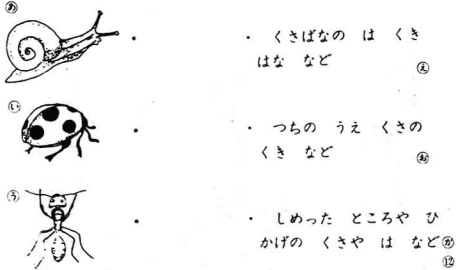 あ
・ ・ くさばなの は くき
はな など
え
い
・ ・ つちの うえ くさの
くき など
お
う
・ ・ しめった ところや ひ
かげの くさや は など か
12